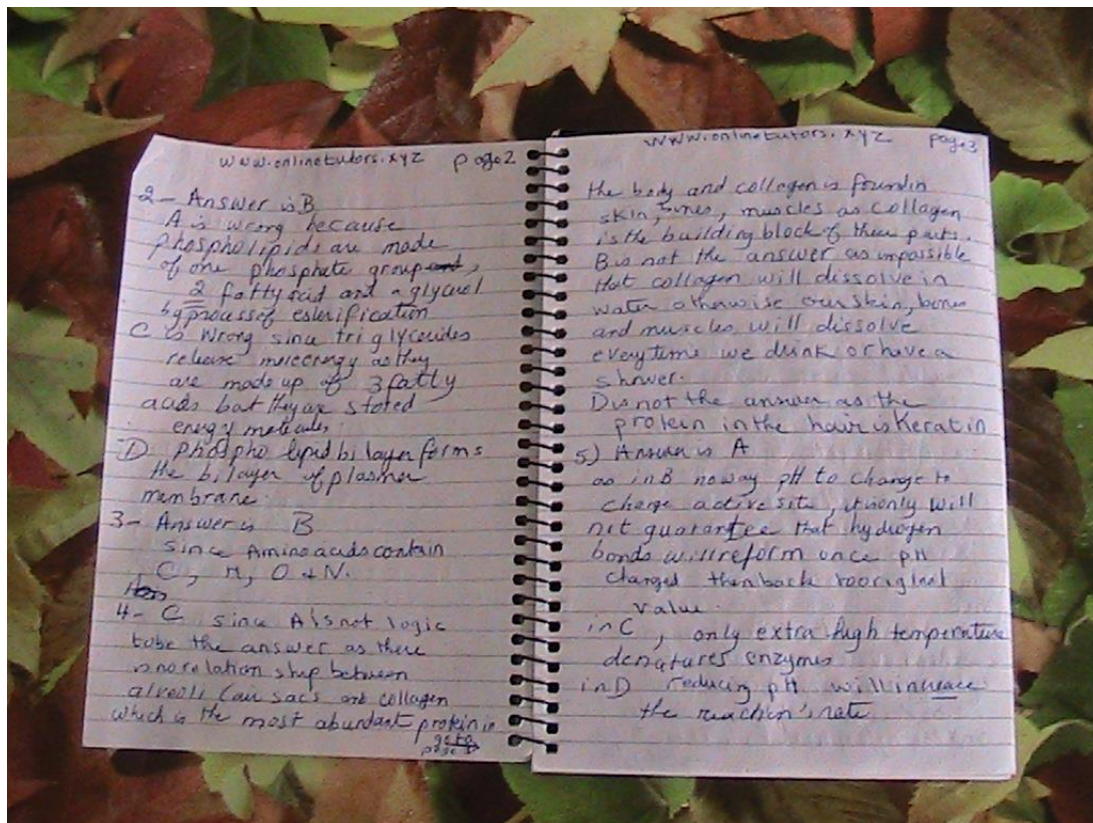 www.onlinetutors.xyz page2
2- Answer is B
A is wrong because
phospholipids are made
of one phosphate group and,
2 fatty acid and a glycerol
by process of esterification
C is wrong since triglycerides
release more energy as they
are made up of 3 fatty
acids but they are stored
energy molecules.
D phospho lipid bilayer forms
the bilayer of plasma
membrane.
3- Answer is B
since Amino acids contain
C, H, O + N.
4- C since A is not logic
to be the answer as there
is no relation ship between
alveoli (air sacs and collagen
which is the most abundant protein in
go to
page 3
www.onlinetutors.xyz page3
the body and collagen is found in
skin, bones, muscles as collagen
is the building block of these parts.
B is not the answer as impossible
that collagen will dissolve in
water otherwise our skin, bones
and muscles will dissolve
every time we drink or have a
shower.
D is not the answer as the
protein in the hair is Keratin
5) Answer is A
as in B no way pH to change to
active site, it only will
not guarantee that hydrogen
bonds will reform once pH
changed then back to original
value.
in C, only extra high temperature
denatures enzymes
in D reducing pH will increase
the reaction's rate